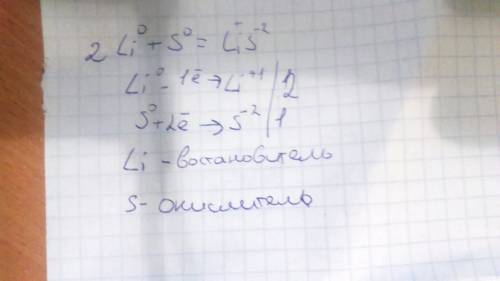 2 Li⁰ + S⁰ = LiS⁻²
Li⁰ - 1ē → Li⁺¹ | 2
S⁰ + 2ē → S⁻² | 1
Li - востановитель
S - окислитель